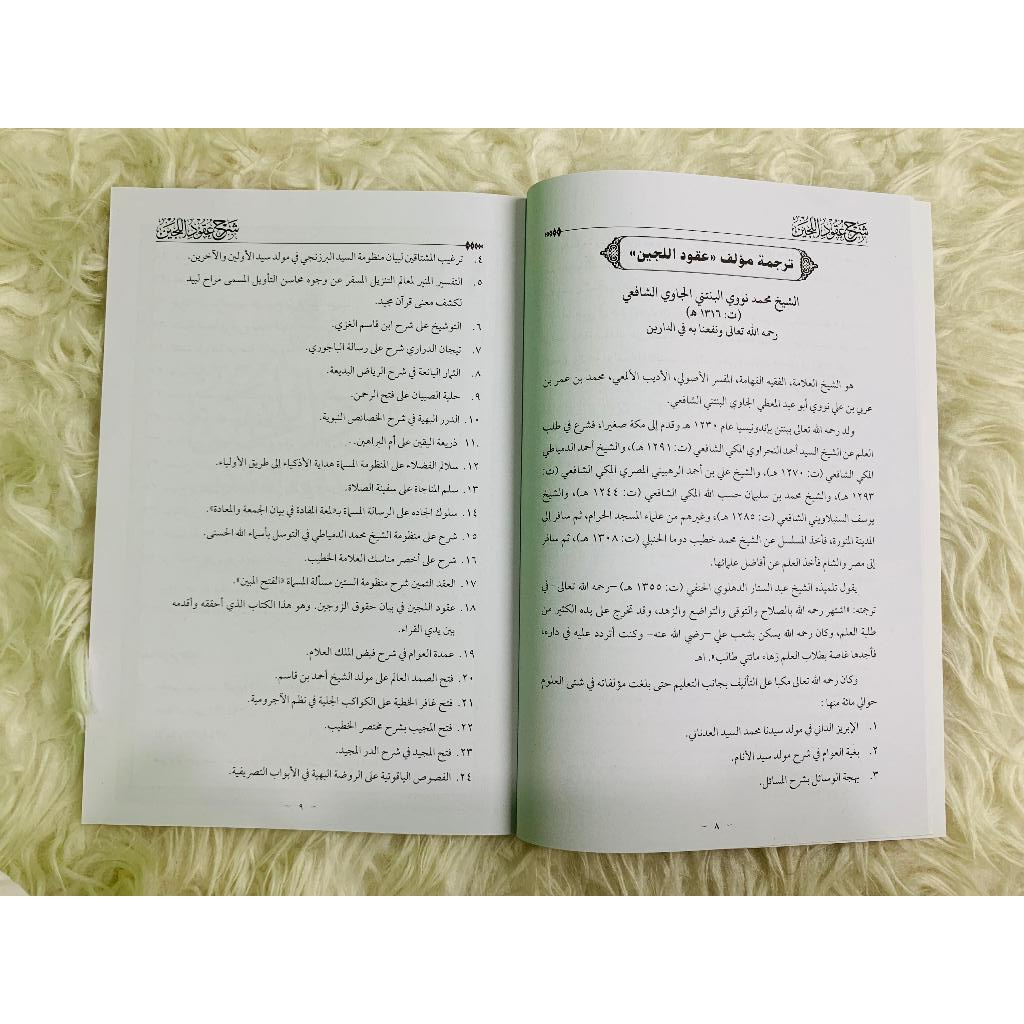 شرح عقود اللجين
ترجمة مؤلف «عقود اللجين»
الشيخ محمد نووي البنتني الجاوي الشافعي
(ت: ١٣١٦ هـ)
رحمه الله تعالى ونفعنا به في الدارين
هو الشيخ العلامة، الفقيه الفهامة، المفسر الأصولي، الأديب الألمعي، محمد بن عمر بن
عربي بن علي نووي أبو عبد المعطي الجاوي البنتني الشافعي.
ولد رحمه الله تعالى ببنتن بإندونيسيا عام ١٢٣٠ هـ وقدم إلى مكة صغيرا، فشرع في طلب
العلم عن الشيخ السيد أحمد النحراوي المكي الشافعي (ت: ١٢٩١ هـ)، والشيخ أحمد الدمياطي
المكي الشافعي (ت: ١٢٧٠ هـ)، والشيخ علي بن أحمد الرهبيني المصري المكي الشافعي (ت:
١٢٩٣ هـ)، والشيخ محمد بن سليمان حسب الله المكي الشافعي (ت: ١٢٤٤ هـ)، والشيخ
يوسف السنبلاويني الشافعي (ت: ١٢٨٥ هـ)، وغيرهم من علماء المسجد الحرام، ثم سافر إلى
المدينة المنورة، فأخذ المسلسل عن الشيخ محمد خطيب دوما الحنبلي (ت: ١٣٠٨ هـ)، ثم سافر
إلى مصر والشام فأخذ العلم عن أفاضل علمائها.
يقول تلميذه الشيخ عبد الستار الدهلوي الحنفي (ت: ١٣٥٥ هـ) –رحمه الله تعالى– في
ترجمته: «اشتهر رحمه الله بالصلاح والتوقى والتواضع والزهد، وقد تخرج على يده الكثير من
طلبة العلم، وكان رحمه الله يسكن بشعب علي –رضي الله عنه– وكنت أتردد عليه في داره،
فأجدها غاصة بطلاب العلم زهاء مائتي طالب». اهـ
وكان رحمه الله تعالى مكبا على التأليف بجانب التعليم حتى بلغت مؤلفاته في شتى العلوم
حوالي مائة منها:
١. الإبريز الداني في مولد سيدنا محمد السيد العدناني.
٢. بغية العوام في شرح مولد سيد الأنام.
٣. بهجة الوسائل بشرح المسائل.
– ٨ –
شرح عقود اللجين
٤. ترغيب المشتاقين لبيان منظومة السيد البرزنجي في مولد سيد الأولين والآخرين.
٥. التفسير المنير لمعالم التنزيل المسفر عن وجوه محاسن التأويل المسمى مراح لبيد
لكشف معنى قرآن مجيد.
٦. التوشيح على شرح ابن قاسم الغزي.
٧. تيجان الدراري شرح على رسالة الباجوري.
٨. الثمار اليانعة في شرح الرياض البديعة.
٩. حلية الصبيان على فتح الرحمن.
١٠. الدرر البهية في شرح الخصائص النبوية.
١١. ذريعة اليقين على أم البراهين.
١٢. سلالم الفضلاء على المنظومة المسماة هداية الأذكياء إلى طريق الأولياء.
١٣. سلم المناجاة على سفينة الصلاة.
١٤. سلوك الجاده على الرسالة المسماة بـ«لمعة المفادة في بيان الجمعة والمعادة».
١٥. شرح على منظومة الشيخ محمد الدمياطي في التوسل بأسماء الله الحسنى.
١٦. شرح على أخصر مناسك العلامة الخطيب.
١٧. العقد الثمين شرح منظومة الستين مسألة المسماة «الفتح المبين».
١٨. عقود اللجين في بيان حقوق الزوجين. وهو هذا الكتاب الذي أحققه وأقدمه
بين يدي القراء.
١٩. عمدة العوام في شرح فيض الملك العلام.
٢٠. فتح الصمد العالم على مولد الشيخ أحمد بن قاسم.
٢١. فتح غافر الخطية على الكواكب الجلية في نظم الآجرومية.
٢٢. فتح المجيب بشرح مختصر الخطيب.
٢٣. فتح المجيد في شرح الدر المجيد.
٢٤. الفصوص الياقوتية على الروضة البهية في الأبواب التصريفية.
– ٩ –